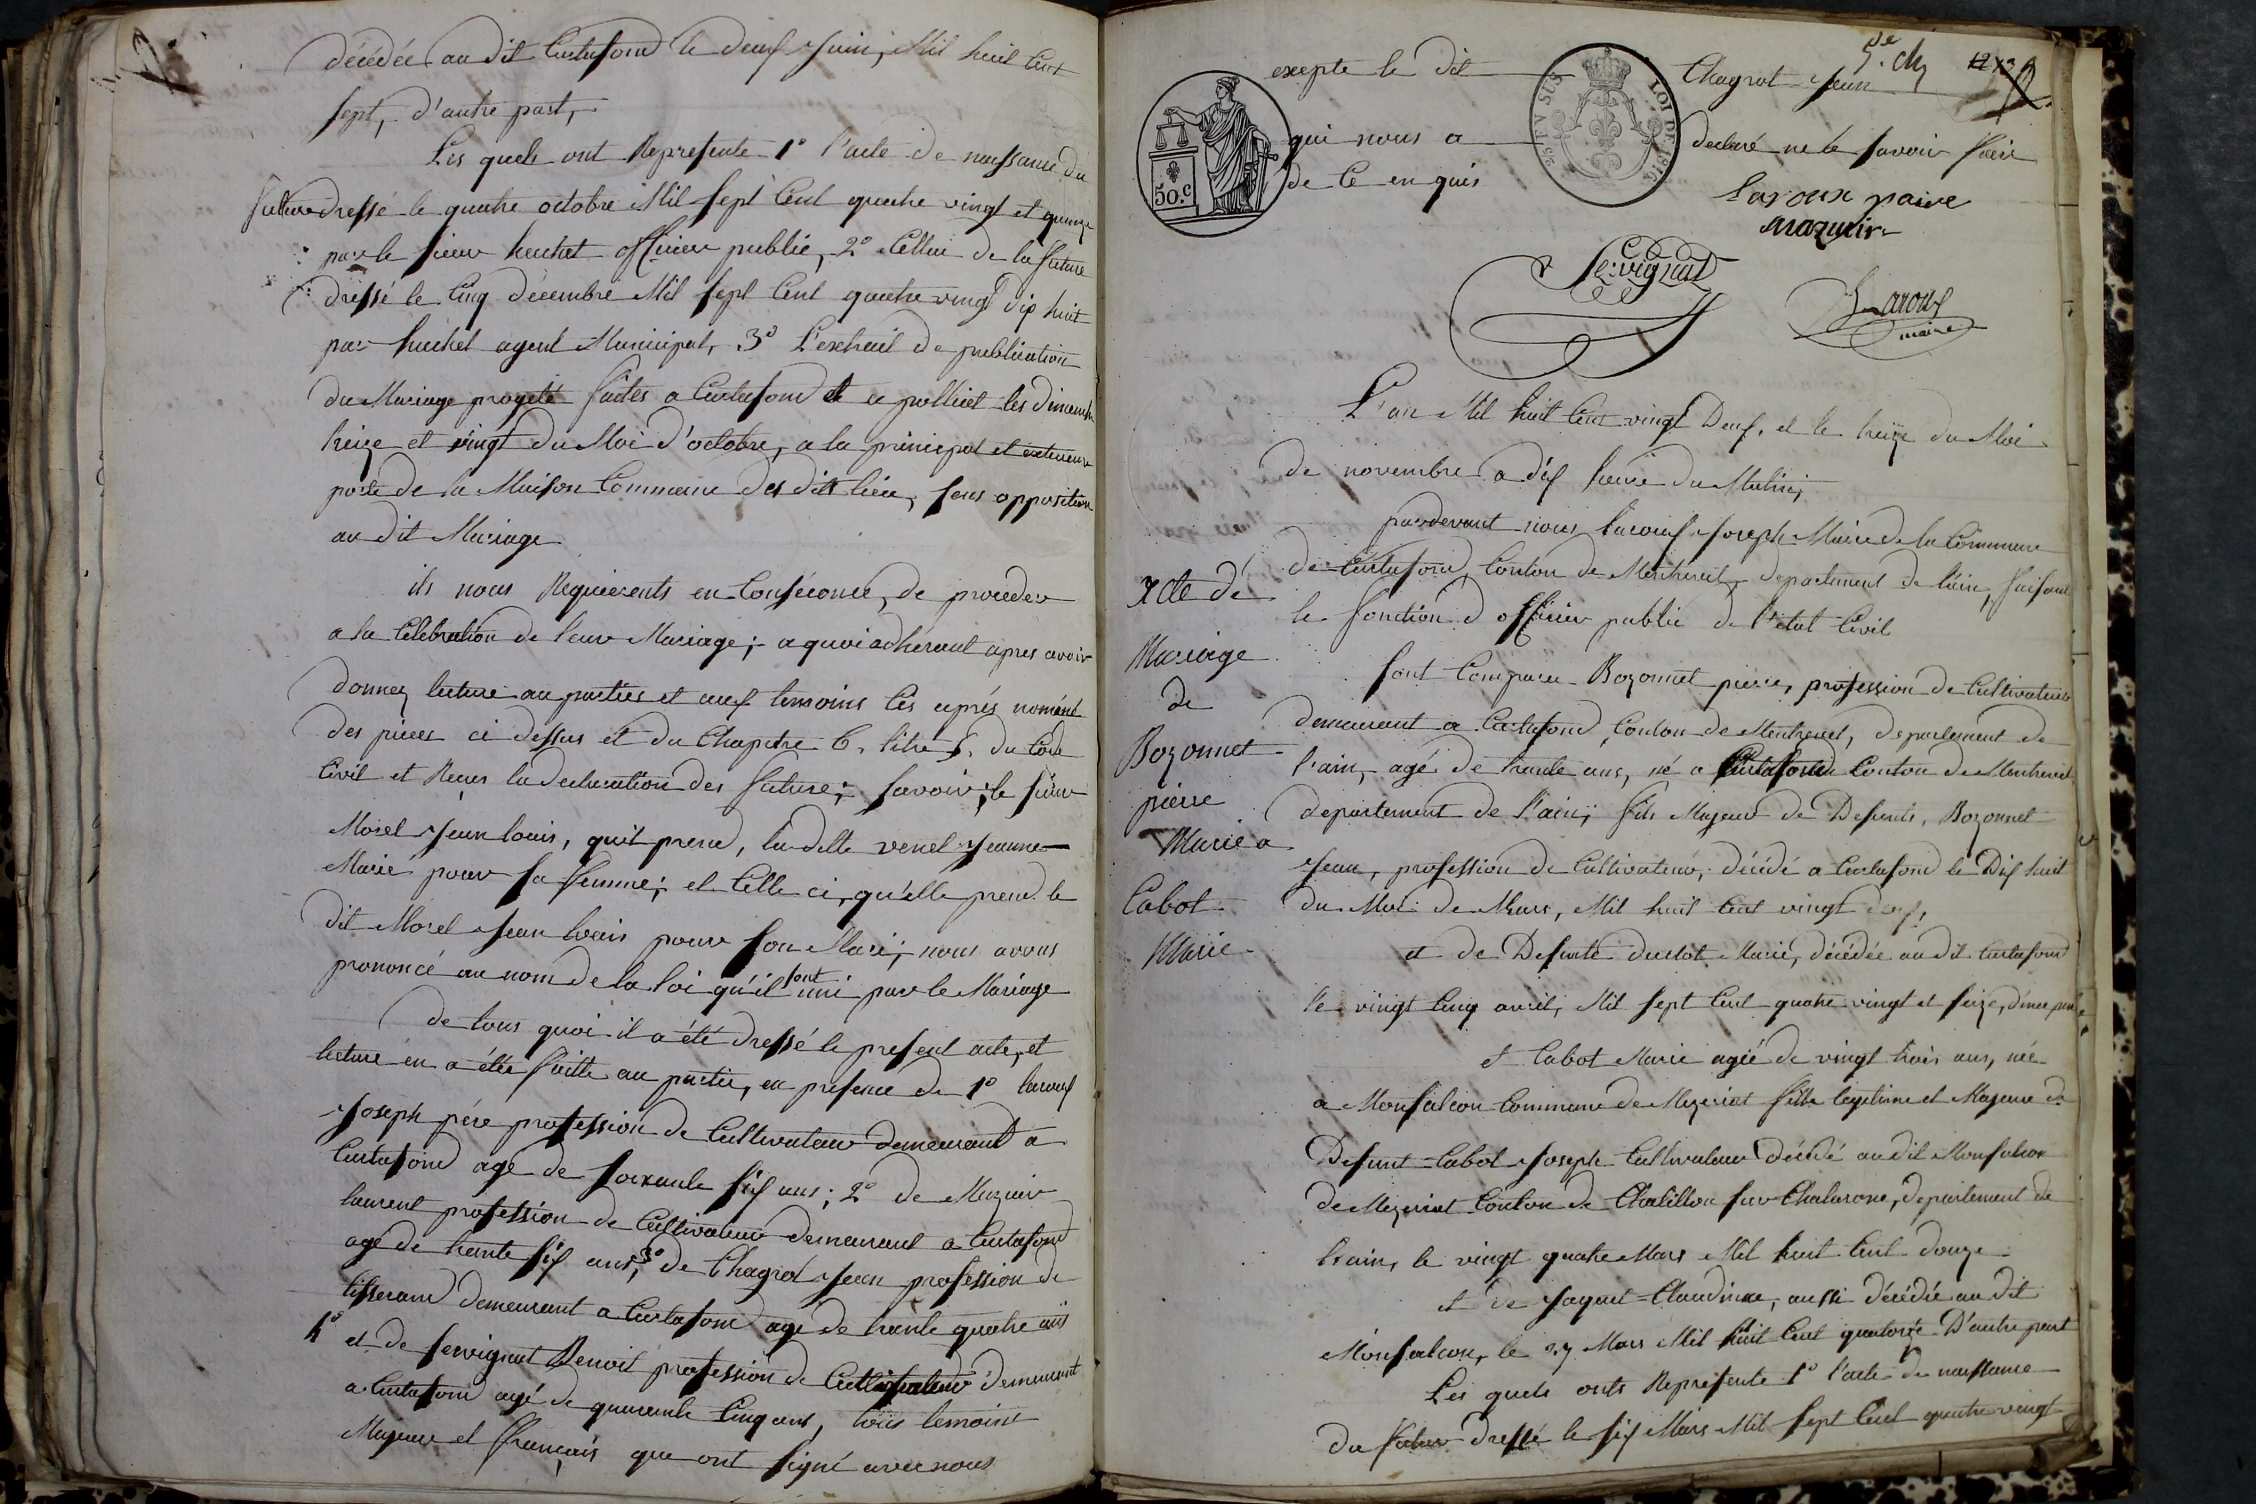 décédée au dit Curtafond le deux Juin, Mil huit Cent
sept, d'autre part,
Les quels ont Represente 1° l'acte de naissance du
futur dressé le quatre octobre Mil sept Cent quatre vingt et quinze
par le sieur huchet officier public, 2° Cellui de la future
dressé le Cinq décembre Mil sept Cent quatre vingt dix huit
par huchet agent Municipal, 3° L'extrait de publication
du Mariage progeté faites a Curtafond et a polliat les dimanche
treize et vingt du Moi d'octobre, a la principal et exterieure
porte de la Maison Commune des dits lieu, sans opposition
au dit Mariage
ils nous Requierents en Conséconce, de proceder
a la Célébration de leur Mariage; a quoi adherant apres avoir
donnez lecture au parties et aux temoins Cis aprés nommé
des pieces ci dessus et du Chapitre 6. titre 5. du Code
Civil et Reçus la declaration des future; savoir; le sieur
Morel Jean louis, quit prend, la dette venet Jeanne
Marie pour sa femme; et Celle ci, qu'elle prend le
dit Morel Jean louis pour son Mari; nous avons
prononcé au nom de la loi qu'il sont uni par le Mariage
de tous quoi il a été dressé le present acte, et
lecture en a étée faitte au partie, en presence de 1° laroux
Joseph pére profession de Cultivateur demeurant a
Curtafond agé de soixante six ans; 2° de Mazuir
laurent profession de Cultivateur demeurant a Curtafond
agé de trente six ans; 3° de Chagrot Jean profession de
tisserand demeurant a Curtafond agé de trente quatre ans
4° et de servignat Benoit profession de Cultivateur demeurant
a Curtafond agé de quarante Cinq ans, tous temoins
Majeure et français que ont signé avec nous
exepte le dit Chagrot Jean
qui nous a declaré ne le savoir faire
de Ce en quis
50.C
25 EN SUS
LOI DE 1816
Laroux paire
mazuir
Servignat
Laroux
maire
L'an Mil huit Cent vingt Deux, et le treize du Moi
de novembre a dix heure du Matin,
pardevant nous laroux Joseph Maire de la Commune
de Curtafond, Conton de Montrevel, departement de l'ain, faisant
le fonction d'officier public de l'etat Civil
Acte de
Mariage
de
Bozonnet
pierre
Marie a
Cabot
Marie
sont Comparu Bozonnet pierre, profession de Cultivateur
demeurant a Curtafond, Conton de Montrevel, departement de
l'ain, agé de trente ans, né a Curtafond Conton de Montrevel
departement de l'ain; fils Majeur de Defunts, Bozonnet
Jean, profession de Cultivateur, décédé a Curtafond le Dix huit
du Moi de Mars, Mil huit Cent vingt deux,
et de Defunte duclot Marie, décédée au dit Curtafond
le vingt Cinq avril, Mil sept Cent quatre vingt et seize, d'une part
et Cabot Marie agée de vingt trois ans, née
a Monfalcon Commune de Mezeriat fille legitime et Majeure de
Defunt Cabot Joseph Cultivateur décédé au dit Monfalcon
de Mezeriat Conton de Chatillon sur Chalarone, departement de
l'ain, le vingt quatre Mars Mil huit Cent douze
et de Jaquet Claudine, aussi décédée au dit
Monfalcon, le 27 Mars Mil huit Cent quatorze D'autre part
Les quels onts Représente 1° l'acte de naissance
du futur dressé le six Mars Mil sept Cent quatre vingt